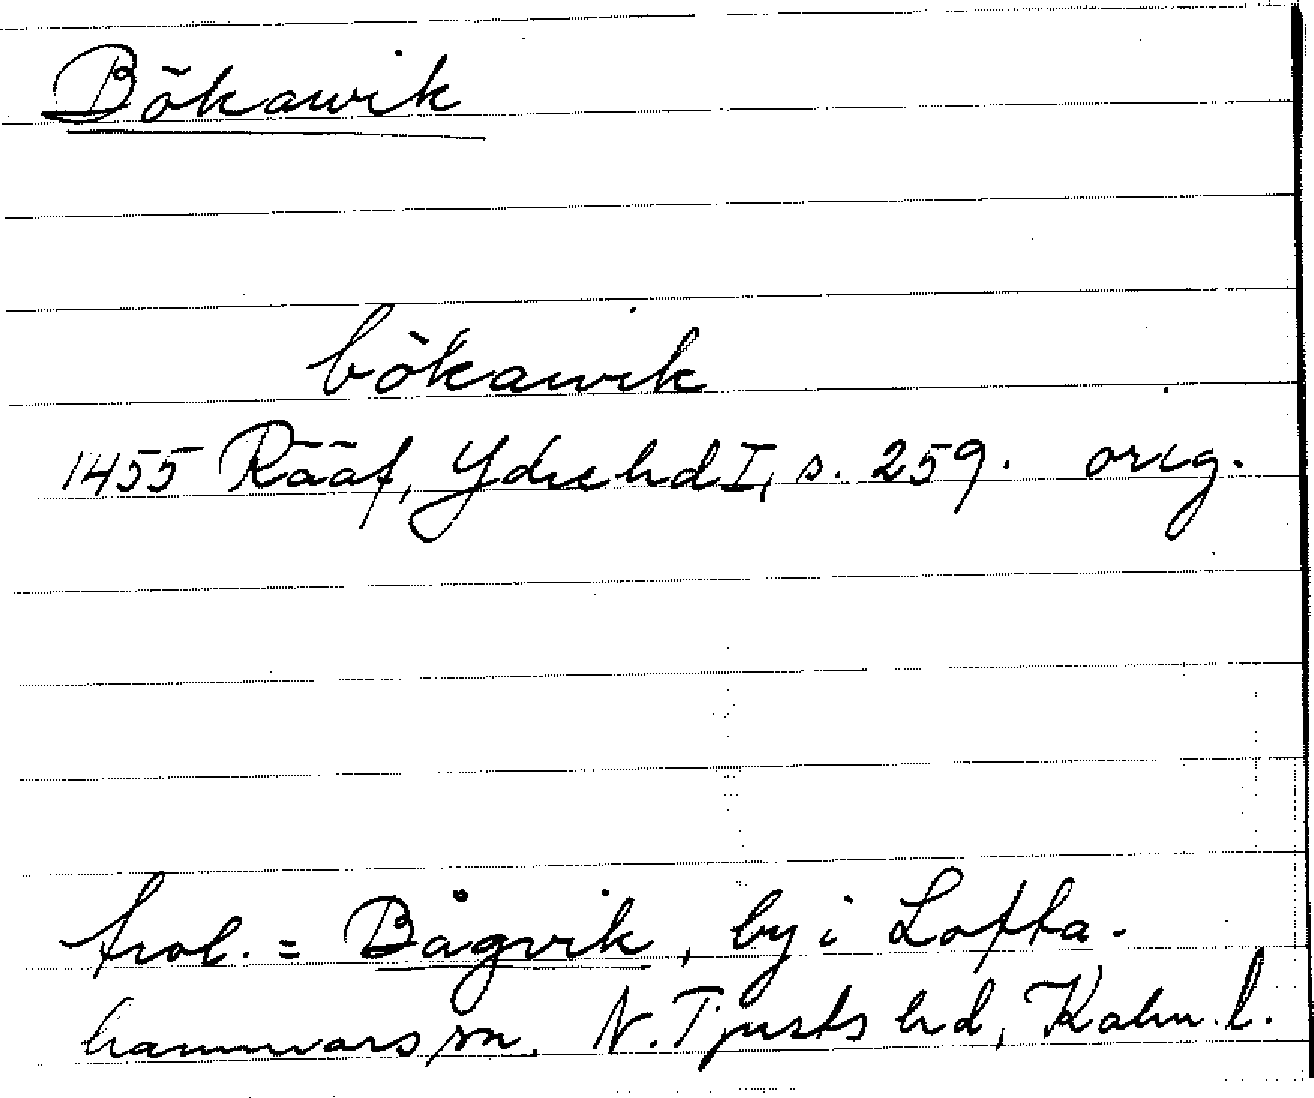 Bökawik
bökawik
1455 Rääf, Ydrehd I, s. 259. orig.
trol. = Bågvik, by i Lofta-
hammars sn. N. Tjusts hd, Kalm. l.